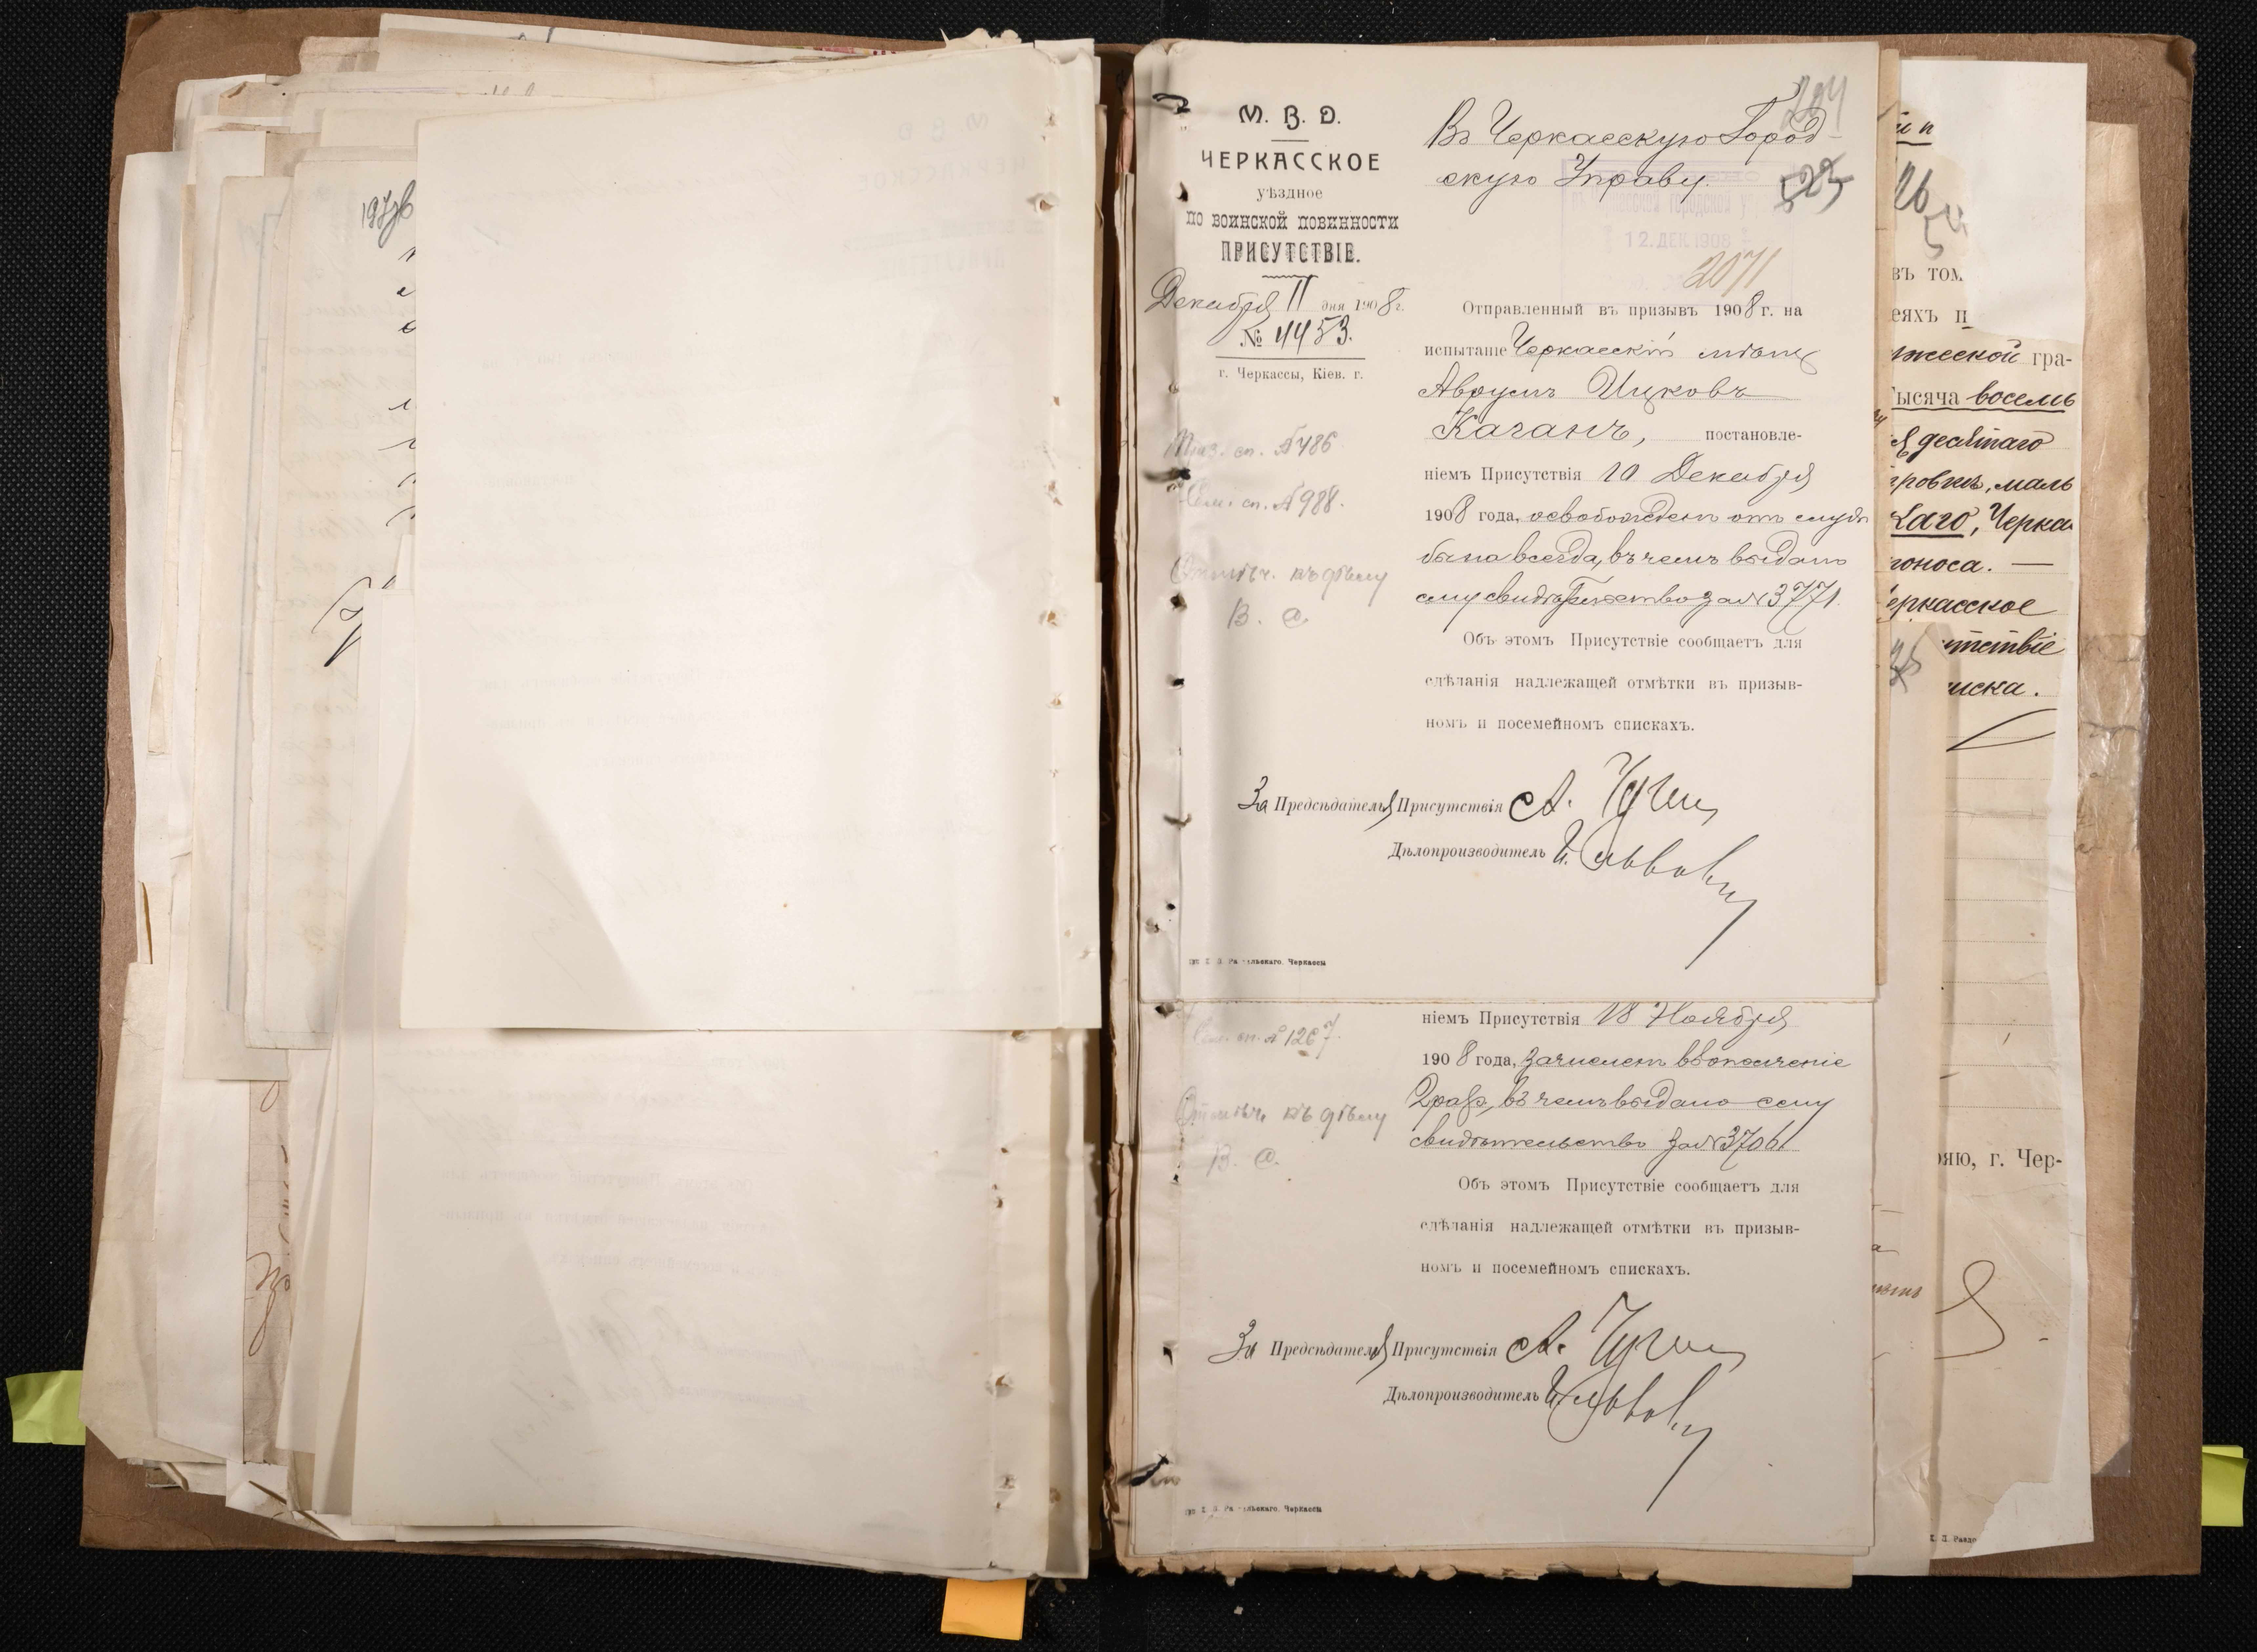 М. В. Д.
ЧЕРКАССКОЕ
уѣздное
по воинской повинности
ПРИСУТСТВІЕ.
Декабря 11 дня 1908 г.
№ 4453.
г. Черкассы, Кіев. г.
сп. № 486
сп. № 988.
Отмѣч. къ дѣлу
В. С.
204
Въ Черкасскую Город
скую Управу.
523
Черкасской городской у
12. ДЕК 1908
2071
Отправленный въ призывъ 1908 г. на
испытаніе Черкасскій мѣщ
Аврумъ Ицковъ
Каганъ, постановле-
ніемъ Присутствія 10 Декабря
1908 года, освобожденъ отъ служ
бы навсегда, въ чемъ выдано
ему свидѣтельство за № 3771.
Объ этомъ Присутствіе сообщаетъ для
сдѣланія надлежащей отмѣтки въ призыв-
номъ и посемейномъ спискахъ.
За Предсѣдателя Присутствія А.
Дѣлопроизводитель
Черкассы
сп. № 1267.
Отмѣч. къ дѣлу
В. С.
ніемъ Присутствія 18 Ноября
1908 года, зачисленъ въ ополченіе
2 разр., въ чемъ выдано сему
свидѣтельство за № 3706
Объ этомъ Присутствіе сообщаетъ для
сдѣланія надлежащей отмѣтки въ призыв-
номъ и посемейномъ спискахъ.
За Предсѣдателя Присутствія А.
Дѣлопроизводитель
Черкассы
въ том
еяхъ п
гра-
Тысяча восемь
десятаго
маль
каго, Черка
поноса. —
еркасское
тствіе
иска.
яю, г. Чер-